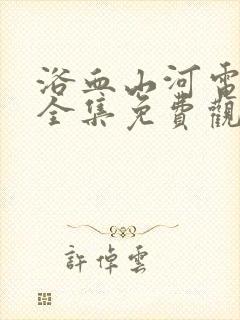 浴血山河電
全集免費觀
許倬雲